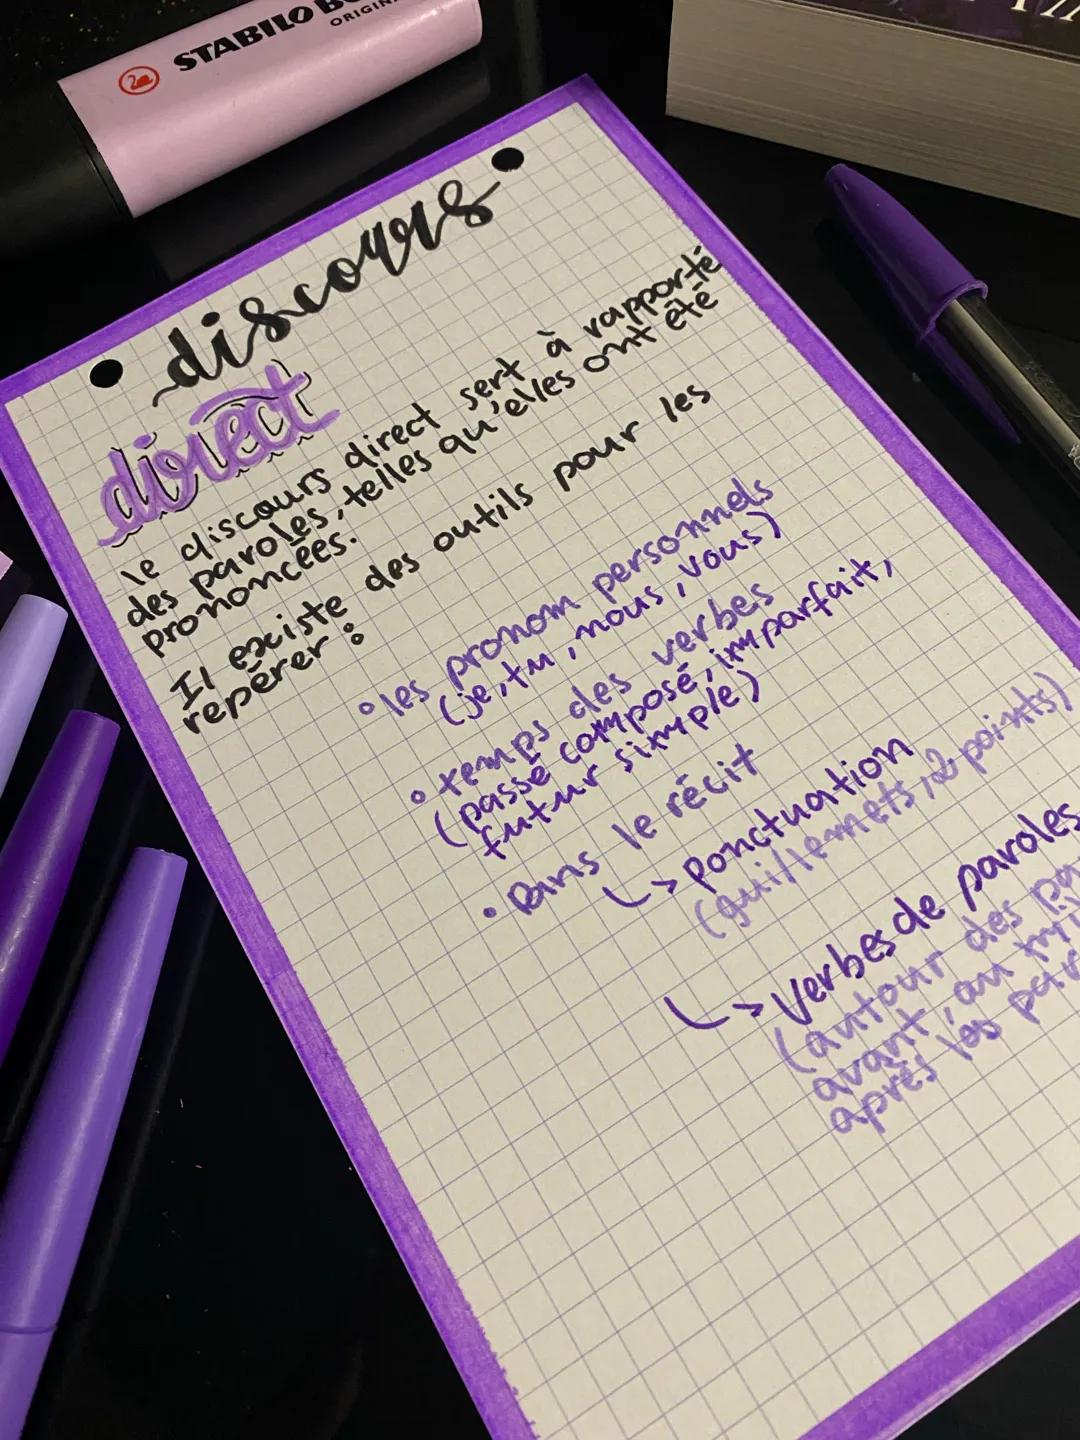 STABILO BO
ORIGIN
discours
direct
le discours direct sert à rapporté
des paroles, telles qu'elles ont été
prononcées.
Il existe des outils pour les
repérer :
• les pronom personnels
(je, tu, nous, vous)
• temps des verbes
(passé composé, imparfait,
futur simple)
• Dans le récit
↳> ponctuation
(guillemets, 2 points)
↳> verbes de paroles
(autour des pa
avant, au mi
après les par